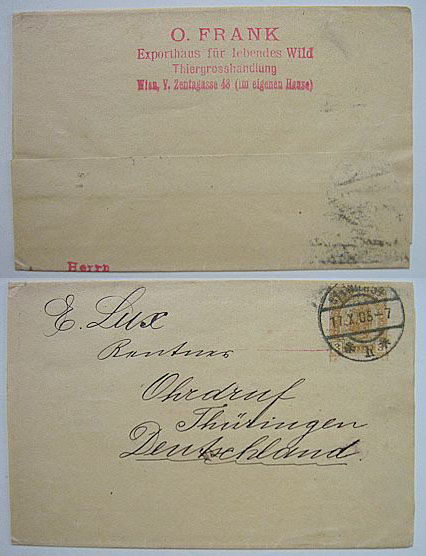 O. FRANK
Exporthaus für lebendes Wild
Thiergrosshandlung
Wien, V. Zentagasse 43 (im eigenen Hause)
Herrn
E. Lux
Rentner
Ohrdruf
Thüringen
Deutschland
17.X.05-7
* R *